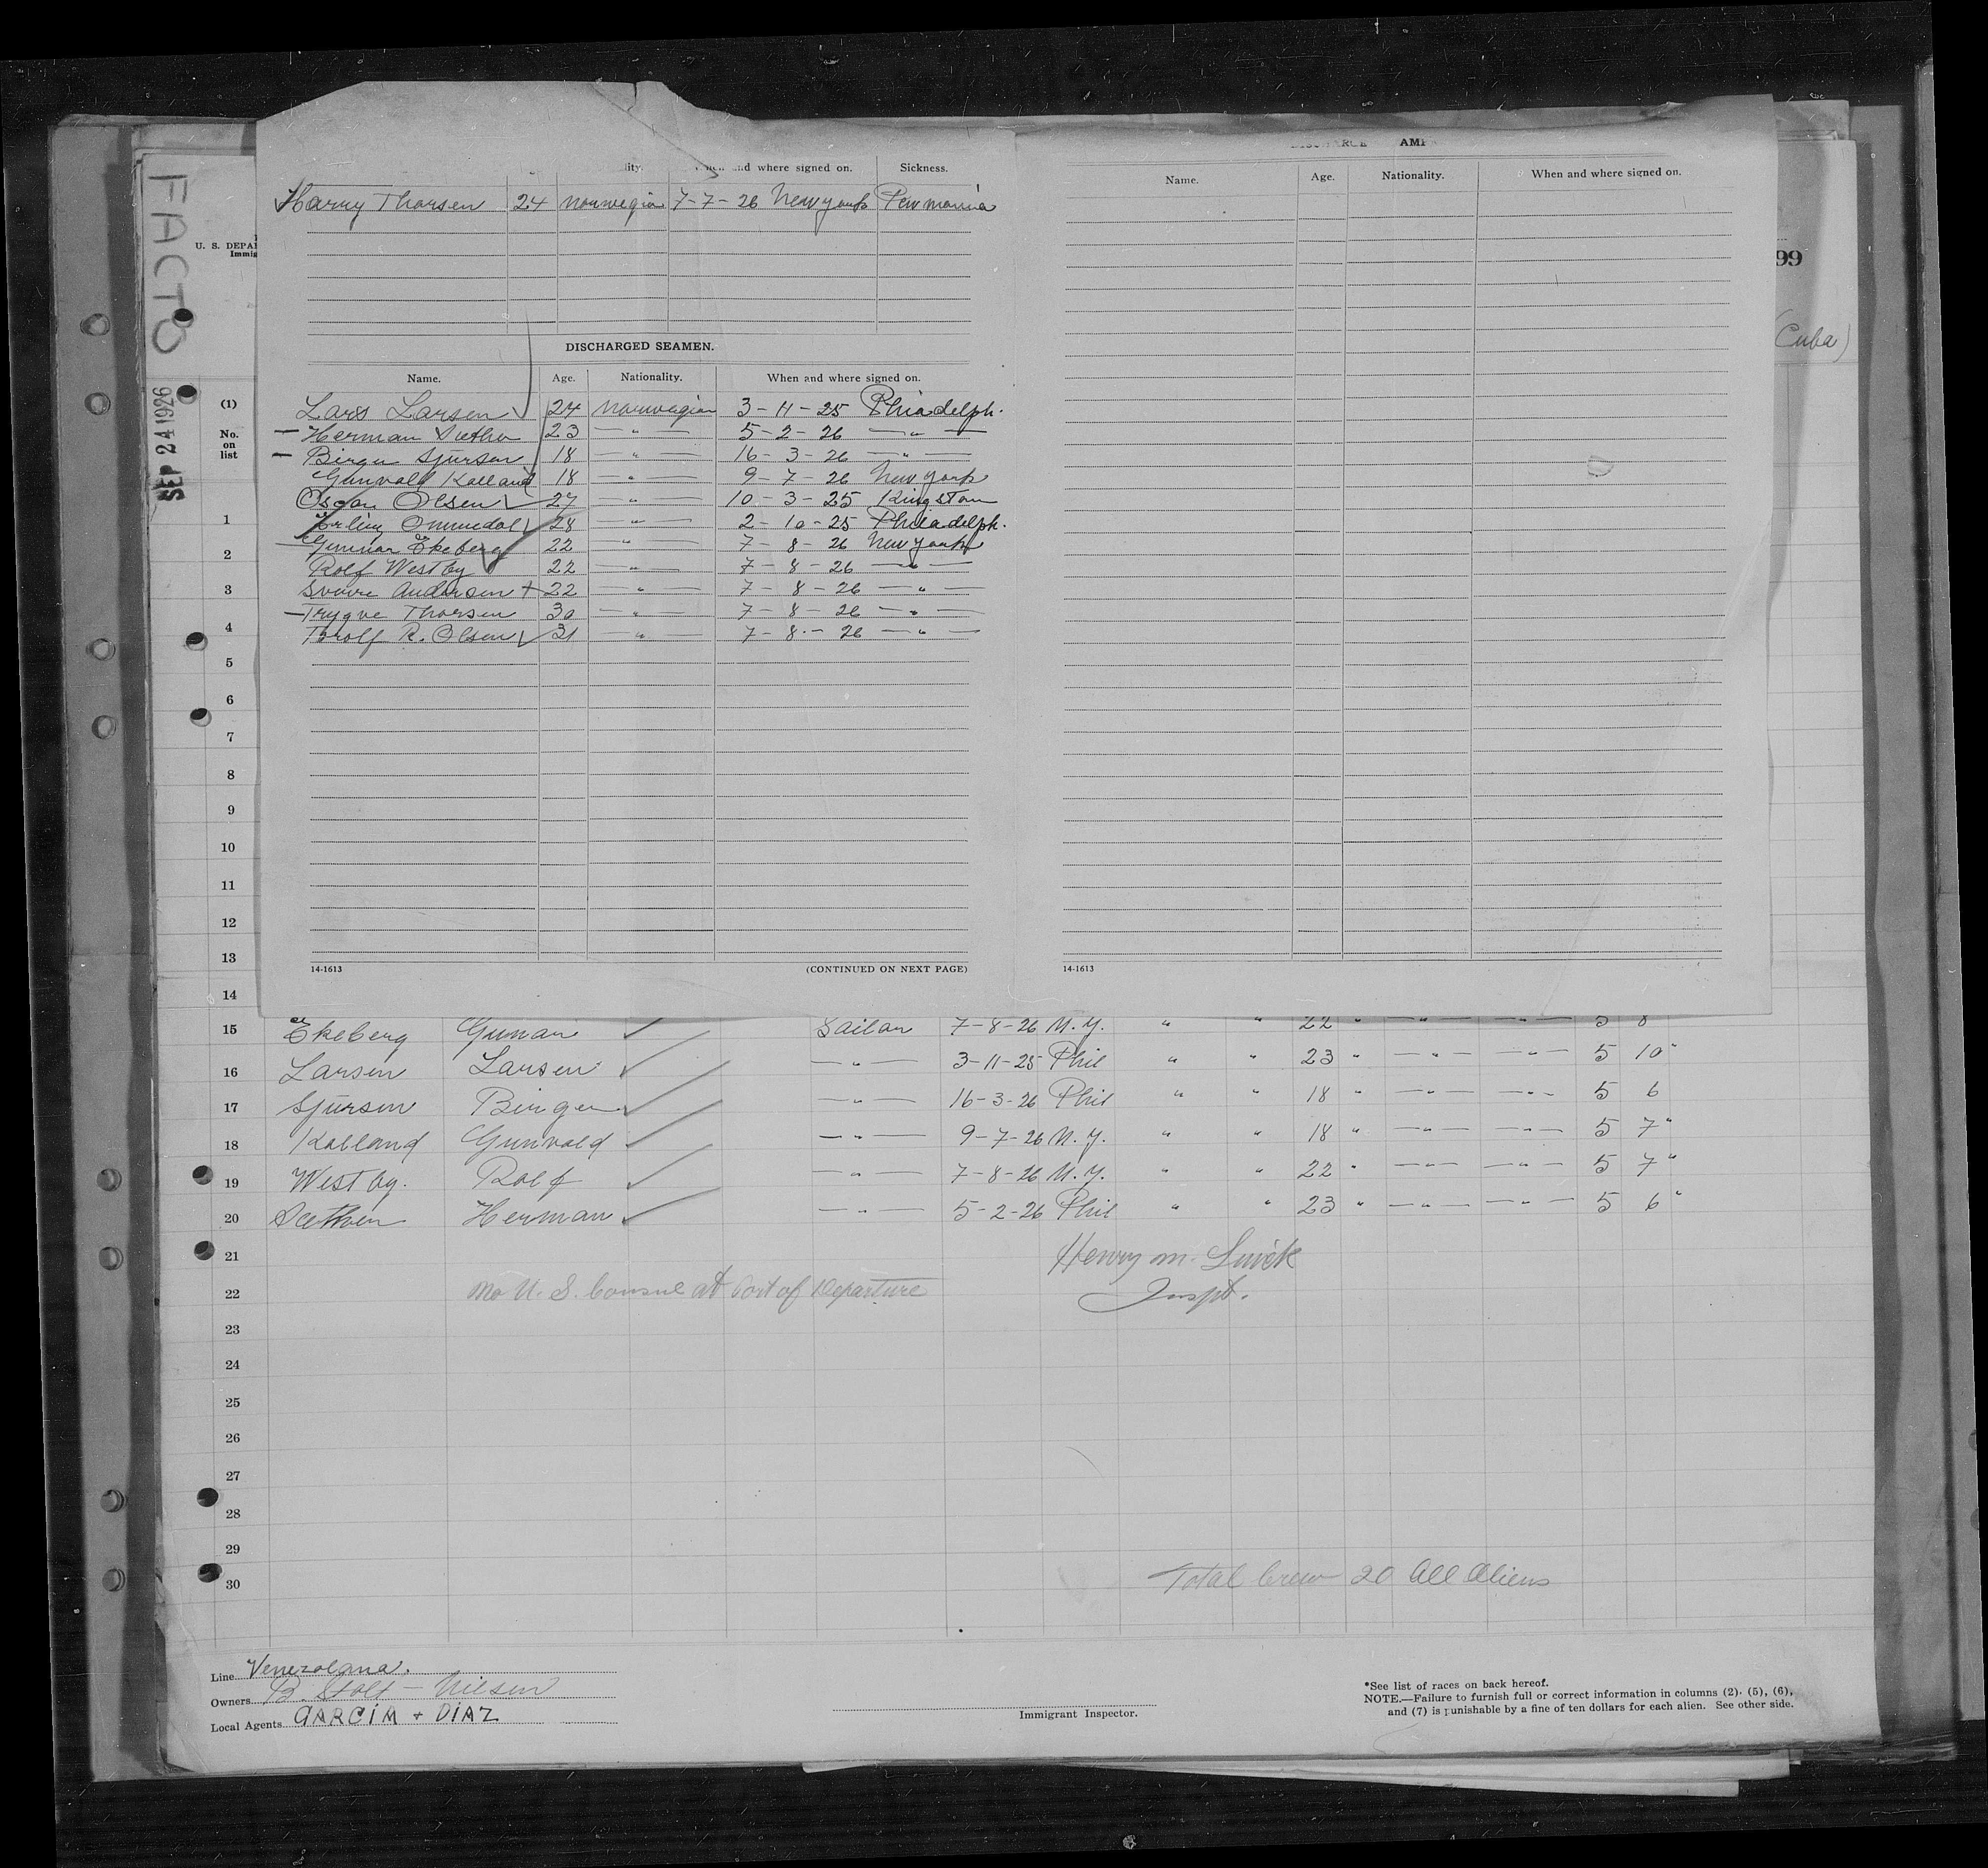 DISCHARGE AMP
lity. When and where signed on. Sickness.
Harry Thorsen 24 Norwegian 7-7-26 New york Pewmonia
DISCHARGED SEAMEN.
Name. Age. Nationality. When and where signed on.
Lars Larsen 24 Norwegian 3-11-25 Phiadelph.
Herman 23 —"— 5-2-26 —"—
Birger Sjursen 18 —"— 16-3-26 —"—
Gunvald Kalland 18 —"— 9-7-26 New york
Oscar Olsen 27 —"— 10-3-25 Kingston
Erling Ommedal 28 —"— 2-10-25 Philadelph.
Gunnar Ekeberg 22 —"— 7-8-26 New york
Rolf Westby 22 —"— 7-8-26 —"—
Sverre Andersen + 22 —"— 7-8-26 —"—
Trygve Thorsen 30 —"— 7-8-26 —"—
Torolf R. Olsen 31 —"— 7-8-26 —"—
14-1613 (CONTINUED ON NEXT PAGE)
Name. Age. Nationality. When and where signed on.
14-1613
FACTO
SEP 24 1926
U. S. DEPA
Immig
99
(Cuba)
(1)
No.
on
list
1
2
3
4
5
6
7
8
9
10
11
12
13
14
15 Ekeberg Gunnar Sailor 7-8-26 N.Y. " " 22 " —"— —"— 5 8
16 Larsen Larsen —"— 3-11-25 Phil " " 23 " —"— —"— 5 10"
17 Sjursen Birger —"— 16-3-26 Phil " " 18 " —"— —"— 5 6
18 Kalland Gunvald —"— 9-7-26 N.Y. " " 18 " —"— —"— 5 7"
19 Westby. Rolf —"— 7-8-26 N.Y. " " 22 " —"— —"— 5 7"
20 Herman —"— 5-2-26 Phil " " 23 " —"— —"— 5 6"
21 Henry M.
22 No U. S. Consul at Port of Departure Inspt.
23
24
25
26
27
28
29
30 Total Crew 20 All Aliens
Line Venezolana.
Owners B. Stolt-Nilsen
Local Agents GARCIA + DIAZ
Immigrant Inspector.
*See list of races on back hereof.
NOTE.—Failure to furnish full or correct information in columns (2), (5), (6),
and (7) is punishable by a fine of ten dollars for each alien. See other side.